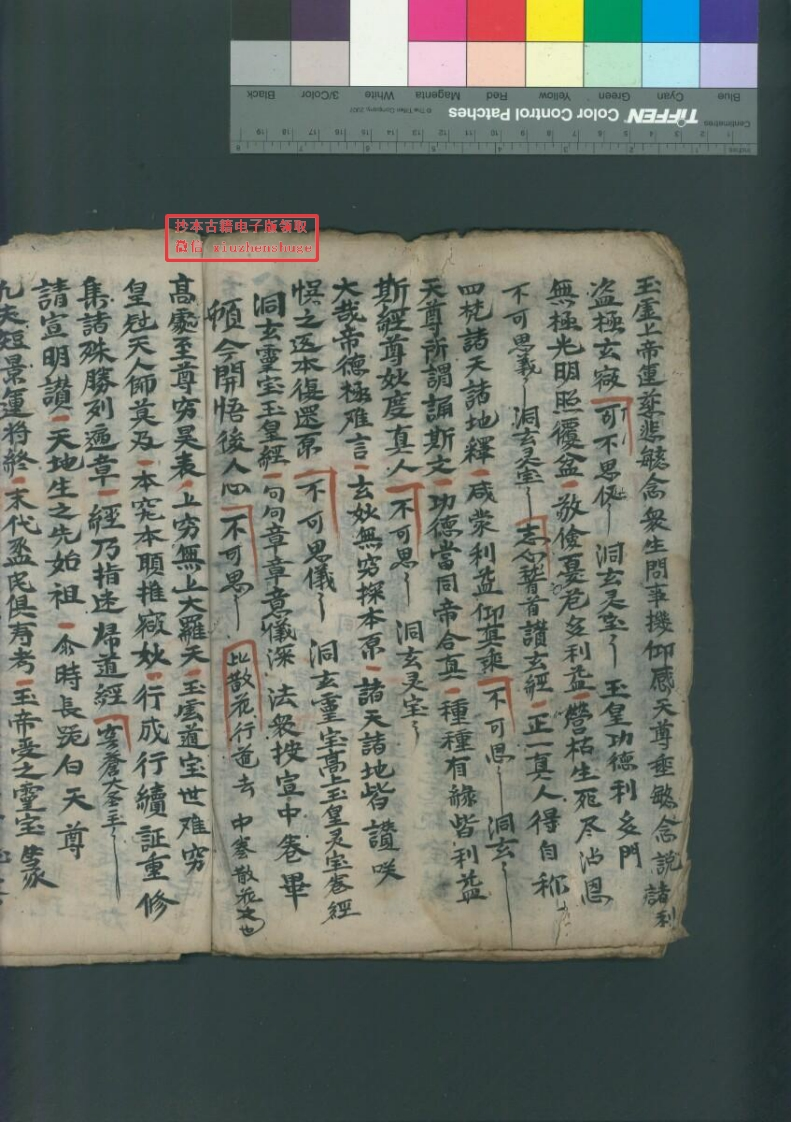 Blue Cyan Green Yellow Red Magenta White 3/Color Black
TIFFEN Color Control Patches
© The Tiffen Company, 2007
Centimetres
Inches
抄本古籍电子版领取
微信 xiuzhenshuge
玉虛上帝運慈悲愍念衆生問事機仰感天尊垂愍念說諸利
盗極玄寂可不思仪〻洞玄灵宝〻玉皇功德利多門
無極光明照覆盆敬儉憂危多利益營枯生死尽沾恩
不可思義〻洞玄灵宝〻志心稽首讃玄經正一真人得自称
四梵諸天諸地釋咸蒙利益仰真乘不可思〻洞玄〻
天尊所謂誦斯文功德當同帝合真種種有緣皆利益
斯經尊妙度真人不可思〻洞玄灵宝〻
大哉帝德極难言玄妙無穷探本原諸天諸地皆讃咲
悞之返本復還原不可思儀〻洞玄靈宝高上玉皇灵宝卷經
洞玄靈宝玉皇經句句章章意儀深法衆按宣中卷畢
頓令開悟後人心不可思〻比散花行道去中卷散花次也
高處至尊穷昊表上穷無上大羅天玉雲道宝世难穷
皇尅天人師莫及本究本願推寂妙行成行續証重修
集諸殊勝列遍章經乃指迷帰道經穹蒼大圣主〻
請宣明讃天地生之先始祖尒時長跪白天尊
九天短景運将終末代盈民俱寿考玉帝受之靈宝